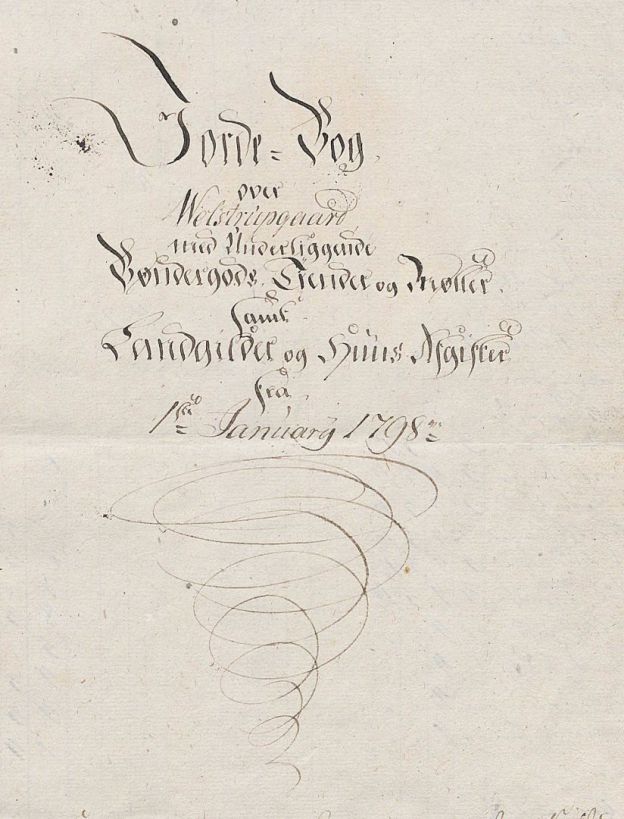 Jorde=Bog.
over
Welstrupgaard
med Underliggende
Bøndergods, Tiender og Møller.
samt
Landgilder og Huus Afgifter
fra
1ste January 1798